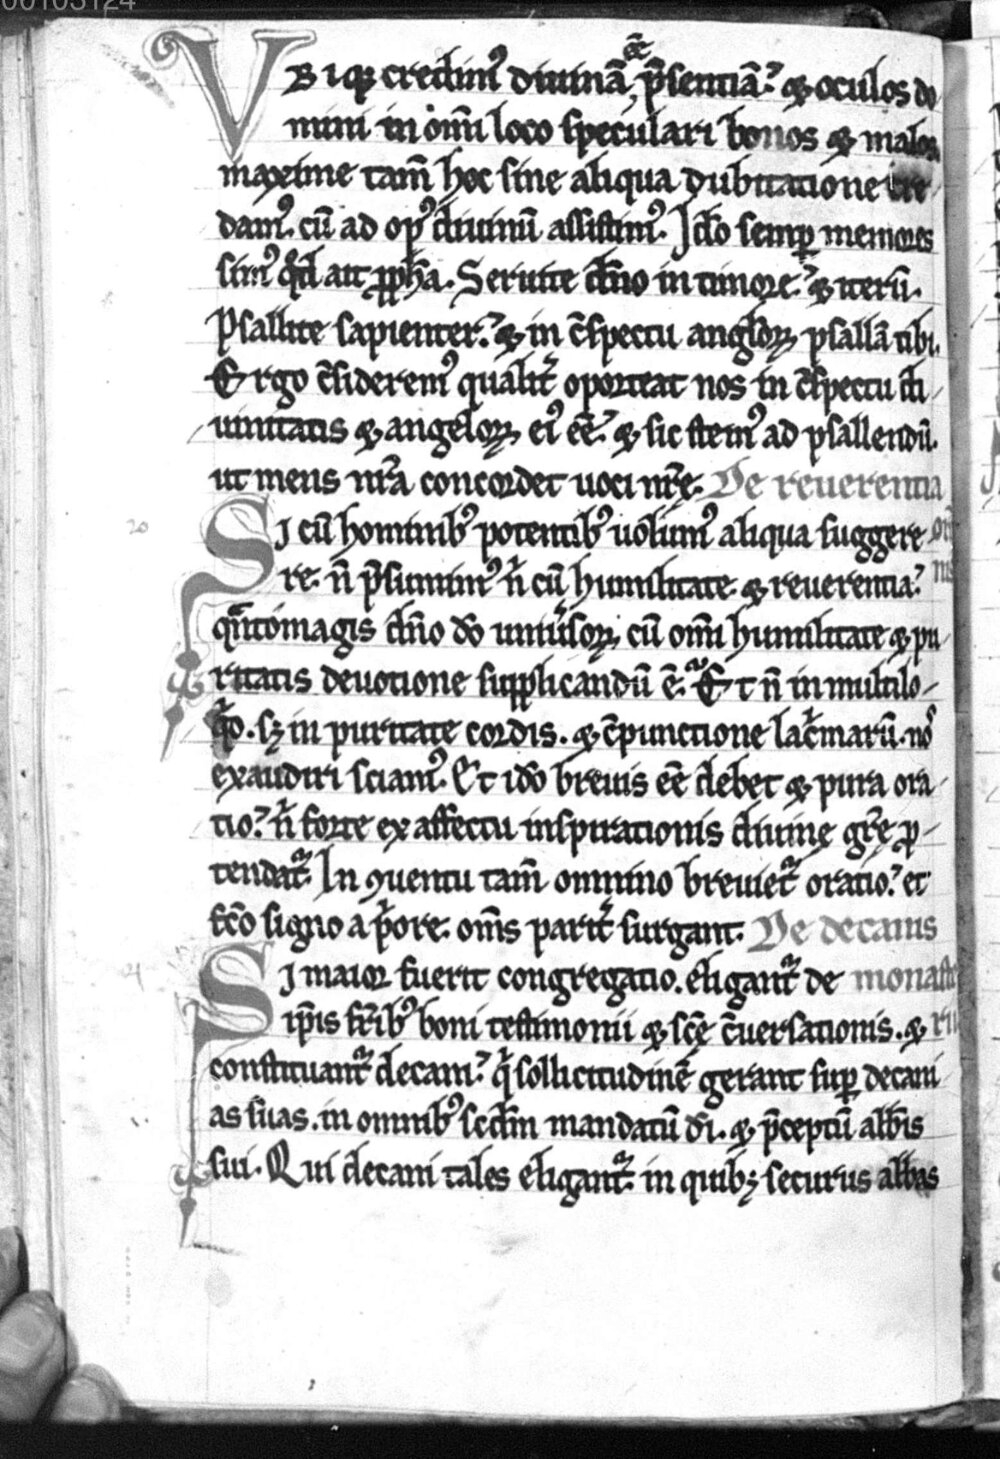 00103124
VBiq; credim᷒ diuinā ee᷒ p̄sentiā. & oculos do
mini in om̄i loco speculari bonos & malos
maxime tam̄ hoc sine aliqua dubitatione cre
dam᷒. cū ad op᷒ diuinū assistim᷒. Ido semp̱ memores
sim᷒ qd̄ ait ꝓph̄a. Seruite dn̄o in timore. & iterū.
Psallite sapienter. & in c̄spectu anglo̱ꝝ psallā tibi.
Ergo c̄siderem᷒ qualit᷑ oporteat nos in c̄spectu di
uinitatis & angeloꝝ ei᷒ ee̅. & sic stem᷒ ad psallendū.
ut mens nr̄a concordet uoci nr̄ę. De reuerentia
20 SI cū hominib᷒ potentib᷒ uolum᷒ aliqua suggere or̄
re. n̄ p̄sumim᷒ n̄ cū humilitate & reuerentia. nis
qn̄tomagis dn̄o do uniu᷑soꝝ cū om̄i humilitate & pu
ritatis deuotione supplicandū ē. Et n̄ in multilo
qo. sꝫ in puritate cordis. & c̄punctione lac̄marū. nos
exaudiri sciam᷒. Et ido breuis ee̅ debet & pura ora
tio. n̄ forte ex affectu inspirationis diuinę gr̄ę ꝓ
tendat᷑. In ꝯuentu tam̄ omnino breuiet᷑ oratio. et
fc̄o signo a p̄ore. om̄s parit᷑ surgant. De decanis
21 SI maior fuerit congregatio. eligant᷑ de monaste
ip̄is fr̄ib᷒ boni testimonii & sc̄ę c̄uersationis. & rii
constituant᷑ decani. q̄ sollicitudinē gerant sup̱ decani
as suas. in omnib᷒ scd̄m mandatū di. & p̄ceptū abb̄is
sui. Qui decani tales eligant᷑. in quibꝫ securus abbas